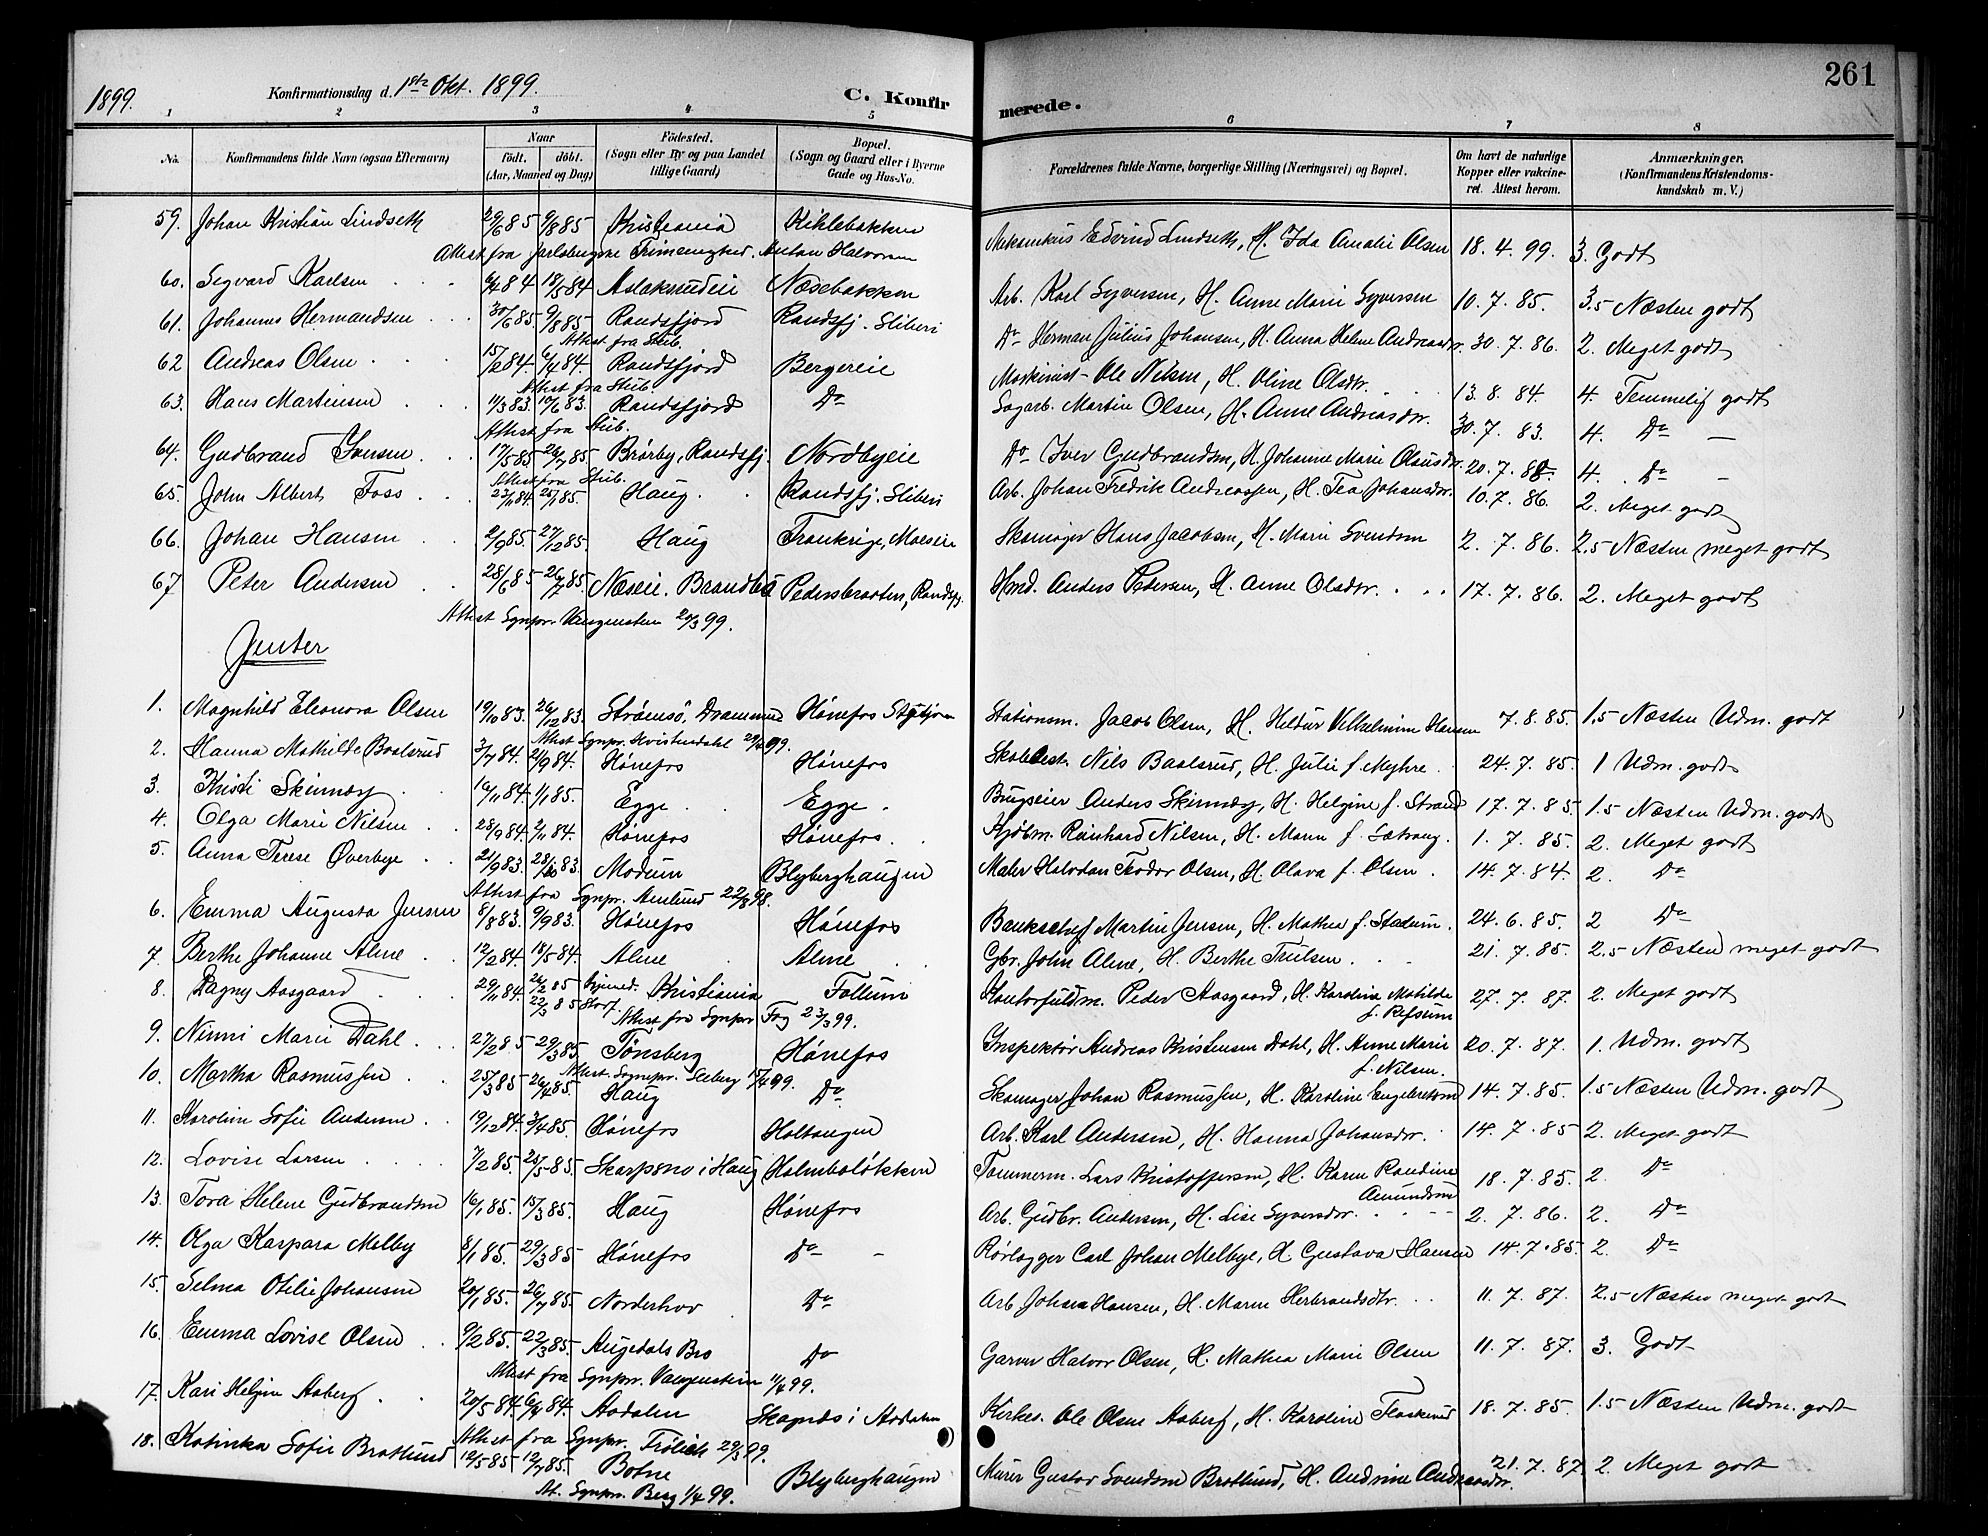 1899.
Konfirmationsdag d. 1ste Okt. 1899.
C. Konfirmerede.
261
1 2 3 4 5 6 7 8
No.
Konfirmandens fulde Navn (ogsaa Efternavn)
Naar
födt. döbt.
(Aar, Maaned og Dag)
Födested.
(Sogn eller By og paa Landet
tillige Gaard)
Bopæl.
(Sogn og Gaard eller i Byerne
Gade og Hus-No.
Forældrenes fulde Navne, borgerlige Stilling (Næringsvei) og Bopæl.
Om havt de naturlige
Kopper eller vakcine-
ret. Attest herom.
Anmærkninger.
(Konfirmandens Kristendoms-
kundskab m. V.)
59. Johan Kristian Lindseth 29/6 85 9/8 85 Kristiania Kihlebakken Mekanikus Edvind Lindseth, H. Ida Amalie Olsen 18. 4. 99. 3. Godt
Attest fra Jarlsbergske Frimenighed. Anton Halvorsen
60. Segvard Karlsen 6/4 84 18/5 84 Aslaksrudeie Næsebakken Arb. Karl Syversen, H. Anne Marie Syversen 10. 7. 85. 3.5 Næsten godt
61. Johannes Hermandsen 30/6 85. 9/8 85. Randsfjord Randsfj. Sliberi Do Herman Julius Johansen, H. Anna Helene Andreasdr. 30. 7. 86. 2. Meget godt
Attest fra Stub.
62 Andreas Olsen 15/2 84 6/4 84. Randsfjord Bergereie Maskinist Ole Nilsen, H. Oline Olsdtr. 13. 8. 84. 4. Temmelig godt
Attest fra Stub
63. Hans Martinsen 11/3 83. 10/6 83. Randsfjord Do Sagarb. Martin Olsen, H. Anne Andreasdr. 30. 7. 83. 4. Do —
Attest fra Stub.
64. Gudbrand Iversen 17/5 85. 26/7 85. Brørby, Randsfj. Nordbyeie Do Iver Gudbrandsen, H. Johanne Marie Olausdr. 20. 7. 4. Do —
Attest fra Stub.
65. John Albert Foss 23/11 84. 25/1 85. Haug Randsfj. Sliberi Arb. Johan Fredrik Andreassen, H. Tea Johansdr. 10. 7. 86. 2. Meget godt
66. Johan Hansen 2/9 85. 27/12 85. Haug Frankrige, Moeseie Skomager Hans Jacobsen, H. Marie Svendsen 2. 7. 86. 2.5 Næsten meget godt
67 Peter Andersen 28/6 85 26/7 85. Næseie. Brandbu Pedersbraaten, Randsfj. Hmd. Anders Pedersen, H. Anne Olsdtr. 17. 7. 86. 2. Meget godt
Attest Sgnpr. Vangensten 20/3 99.
Jenter
1. Magnhild Eleonora Olsen 19/10 83. 26/12 83. Strømsö, Drammen Hønefos Stationsm. Jacob Olsen, H. Hildur Vilhelmine Hansen 7. 8. 85. 1.5 Næsten Udm. godt
Attest Sgnpr. Kvisterudahl 29/4 99.
2. Hanna Mathilde Baalsrud 3/7 84. 21/9 84. Hønefos Hønefos Skolebest. Nils Baalsrud, H. Julie f. Myhre 24. 7. 85. 1 Udm. godt
3. Kristi Skinnæs 16/11 84. 1/1 85. Egge Egge Brugseier Anders Skinnæs, H. Helgine f. Strand 17. 7. 85. 1.5 Næsten Udm. godt
4. Olga Marie Nilsen 28/9 84. 2/11 84. Hønefos Hønefos Kjøbm. Reinhard Nilsen, H. Maren f. Sætrang. 1. 7. 85. 2. Meget godt
5. Anna Terese Øverbye 21/9 83. 28/10 83. Modum Blyberghaugen Maler Halvdan Teodor Olsen, H. Olava f. Olsen 14. 7. 84. 2. Do
Attest fra Sgnpr. Amlund 22/8 98.
6. Emma Augusta Jensen 8/8 83. 9/9 83. Hønefos Hønefos Bankchef Martin Jensen, H. Mathea f. Stadum. 24. 6. 85. 2 Do
7. Berthe Johanne Alme 12/2 84. 18/5 84. Alme Alme Gbr. John Alme, H. Berthe Trulsen 21. 7. 85. 2.5 Næsten meget godt
8. Dagny Aasgaard 29/11 84. 26/2 85 hjemmed. Kristiania Follum Kontorfuldm. Peder Aasgaard, H. Karoline Matilde 27. 7. 87. 2. Meget godt
22/3 85 Stadf. f. Refsum
Attest fra Sgnpr Fog 23/3 99.
9. Ninni Marie Dahl 27/2 85 29/3 85. Tønsberg Hønefos Inspektør Andreas Kristensen Dahl, H. Anne Marie 20. 7. 87. 1. Udm. godt
f. Nilsen.
Attest. Sognepr. Seeberg 15/4 99.
10. Martha Rasmussen 25/3 85 26/4 85. Haug Do Skomager Johan Rasmussen, H. Karoline Engebretsen 14. 7. 85. 1.5 Næsten Udm. godt
11. Karoline Sofie Andersen 19/12 84. 3/4 85. Hønefos Holtangen Arb. Karl Andersen, H. Hanna Johansdtr. 14. 7. 85 2. Meget godt
12. Lovise Larsen 7/2 85. 25/5 85. Skarpsno i Haug Holmboløkken Tømmerm. Lars Kristoffersen, H. Karen Randine 18. 7. 85. 2. Do
Amundsen
13. Tora Helene Gudbrandsen 16/1 85. 15/3 85. Haug Hønefos Arb. Gudbr. Andersen, H. Lise Syversdtr. 2. 7. 86. 2. Do
14. Olga Kaspara Melby 8/1 85. 29/3 85 Hønefos Do — Rørlægger Carl Johan Melbye, H Gustava Hansen 14. 7. 85. 2. Do
15. Selma Otilie Johansen 20/1 85. 26/7 85. Norderhov Do Arb. Johan Hansen, H. Maren Herbrandsdtr. 11. 7. 87. 2.5 Næsten meget godt
16. Emma Lovise Olsen 9/2 85. 22/3 85. Augedals Bro Do Garver Halvor Olsen, H. Mathea Marie Olsen 11. 7. 87. 3. Godt
Attest fra Sgnpr. Vangensten 11/4 99.
17. Kari Helgine Aaberg 20/5 84. 6/7 84. Aadalen Skagnæs i Aadalen Kirkes. Ole Olsen Aaberg, H. Karoline Flaskerud 18. 7. 85. 1.5 Næsten Udm. godt
Attest fra Sgnpr. Frølich 29/3 99.
18. Katinka Sofie Bratlund 12/5 85 12/7 85. Botne Blyberghaugen Murer Gustav Svendsen Bratlund, H. Andrine Andreasdr. 21. 7. 87. 2. Meget godt
At. Sgnpr. Berg 1/4 99.